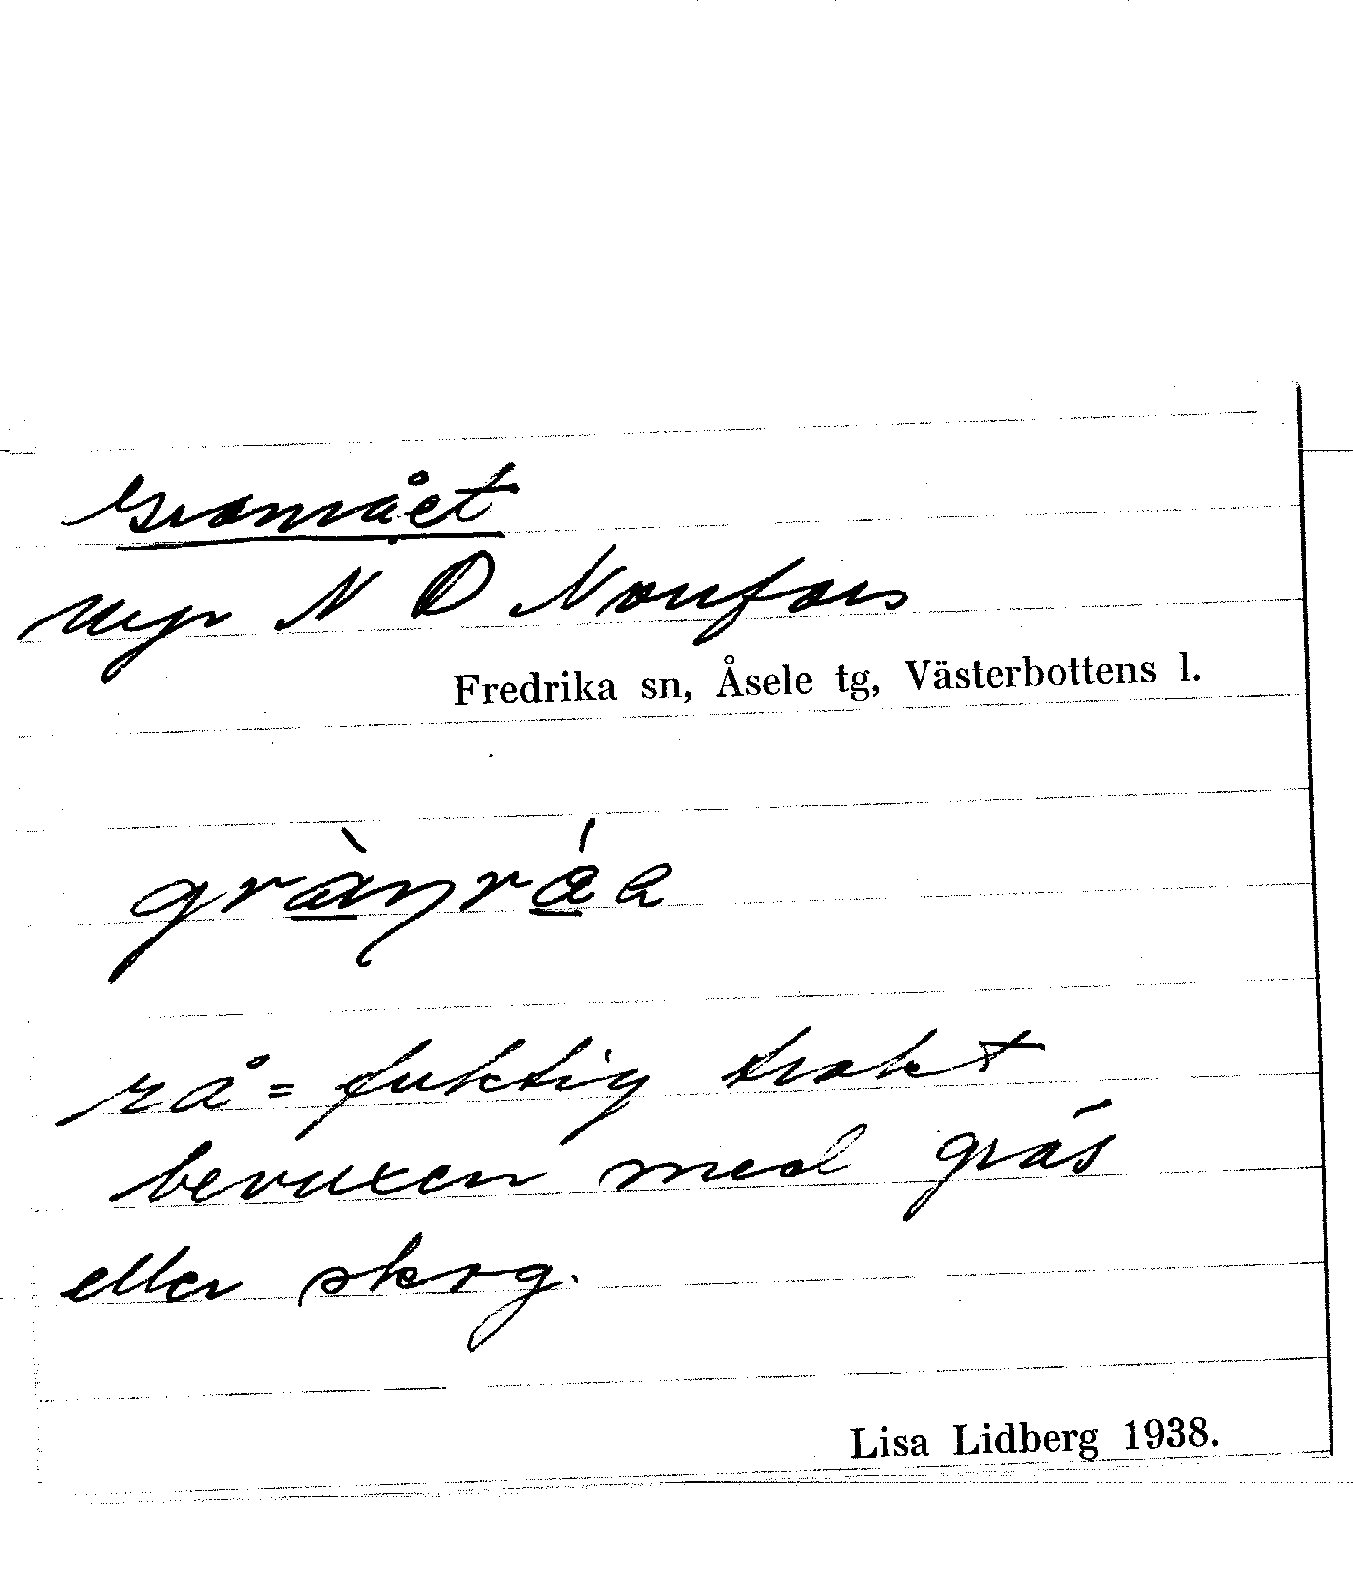 Granrået
myr N O Norrfors
Fredrika sn, Åsele tg, Västerbottens l.
grànráa
rå = fuktig trakt
bevuxen med gräs
eller skog.
Lisa Lidberg 1938.